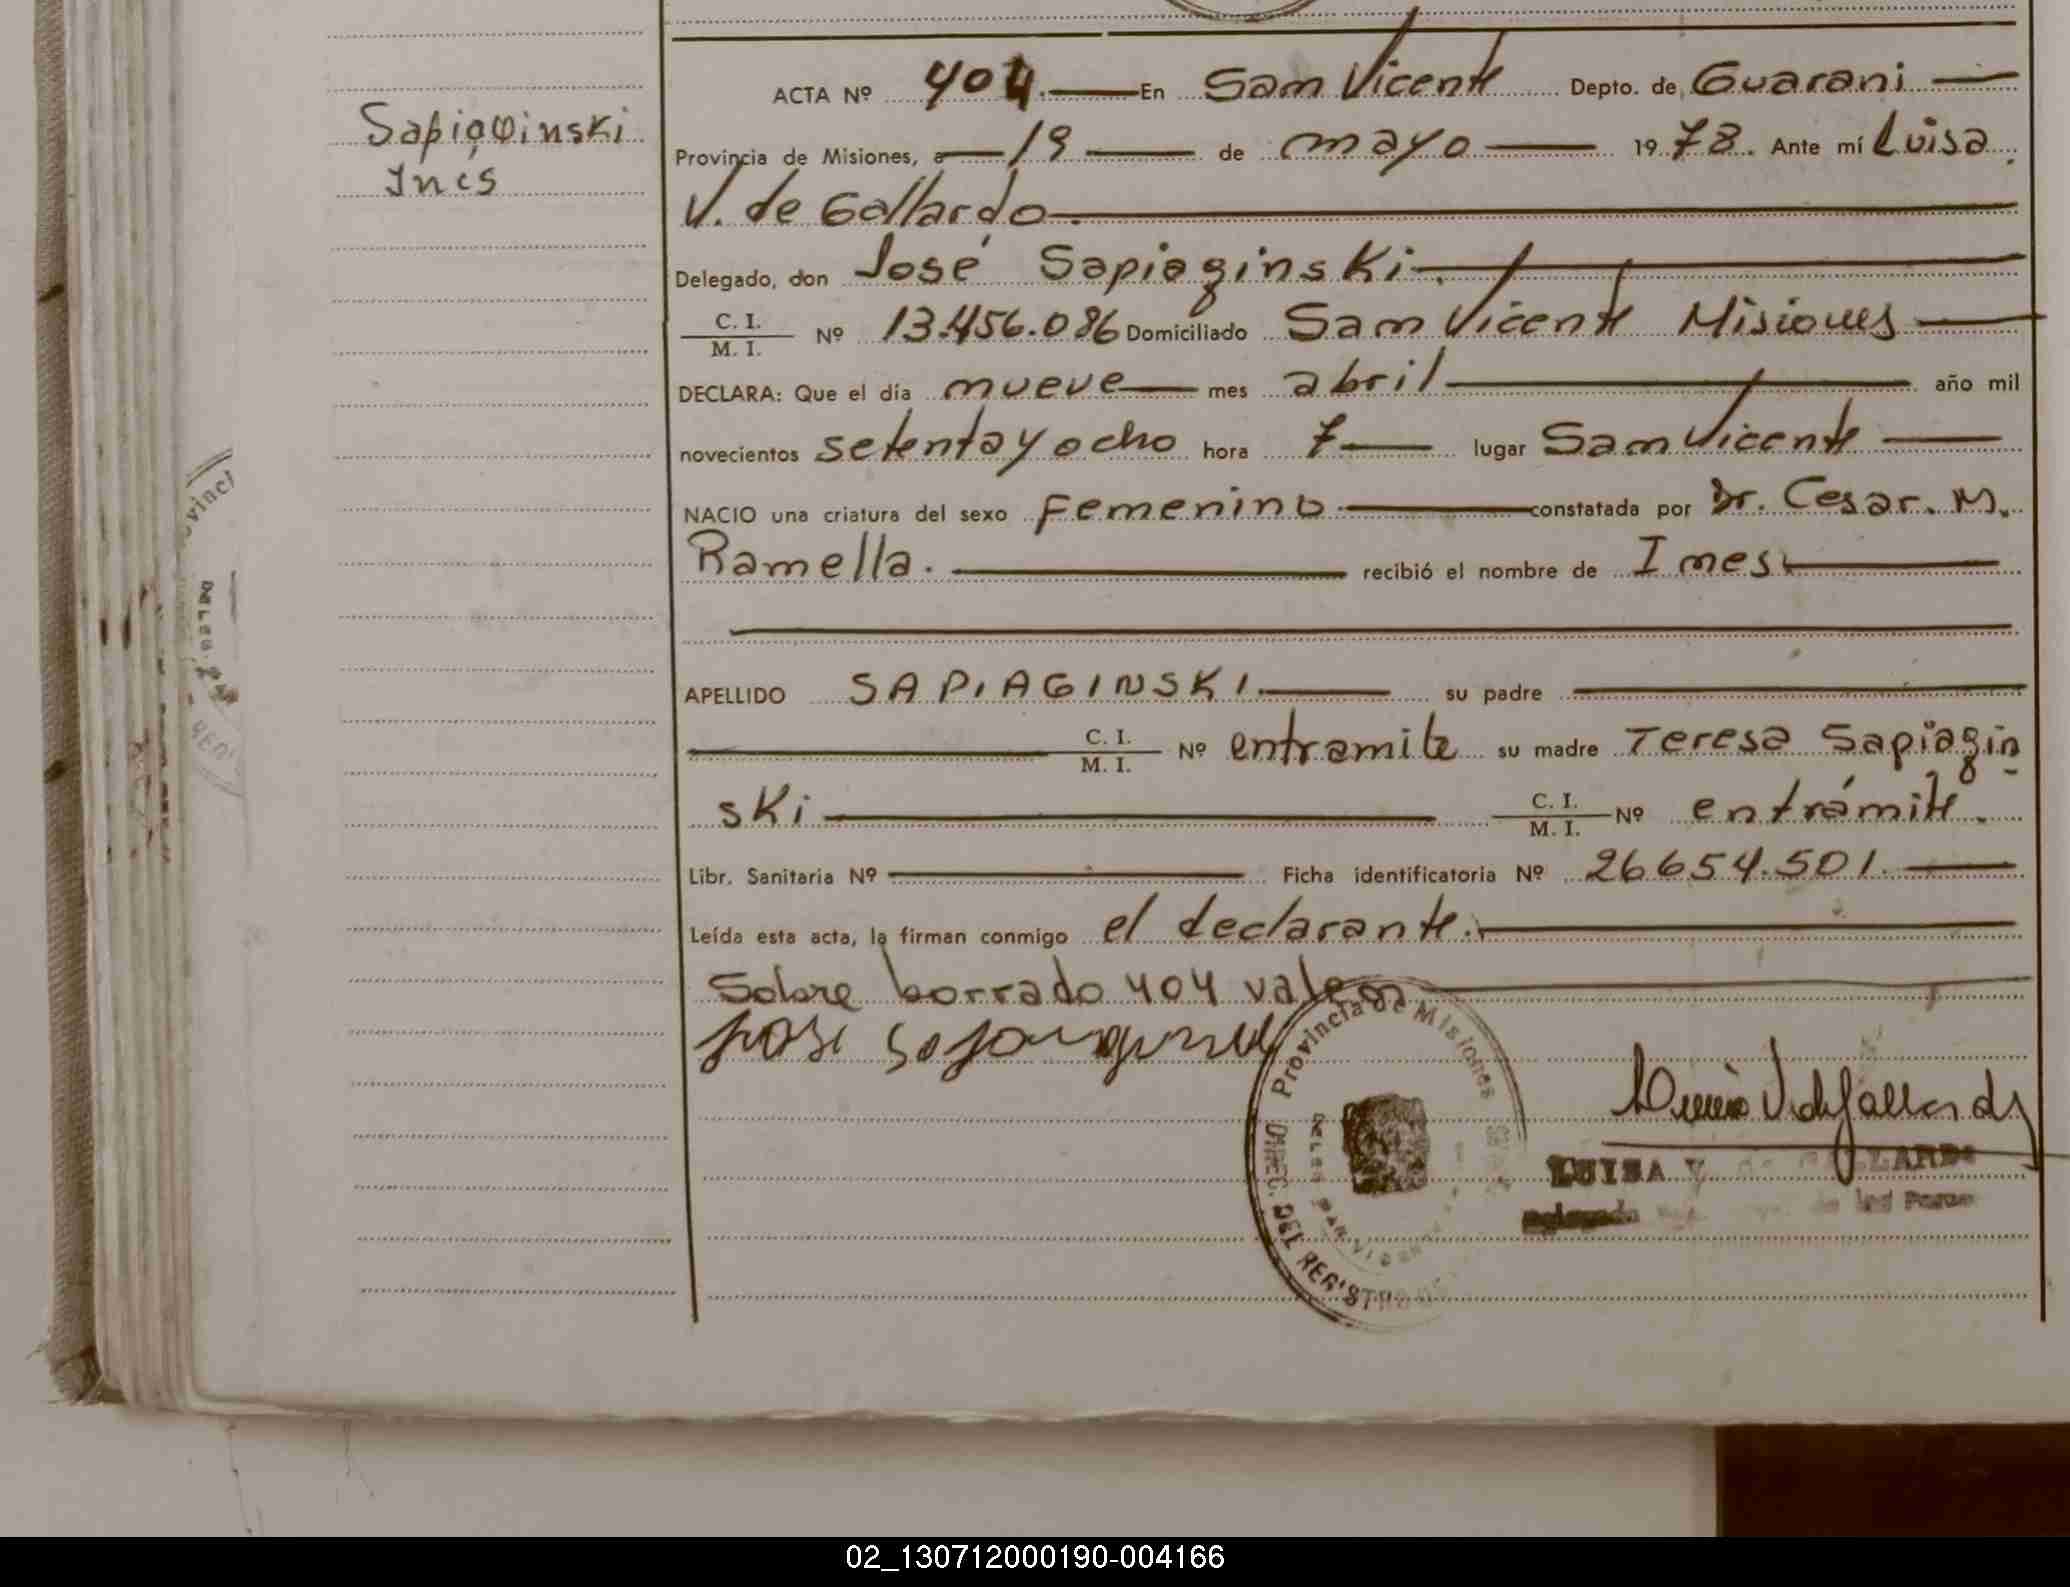 Sapiaginski
Ines
ACTA Nº 404. En San Vicente Depto. de Guarani
Provincia de Misiones, a 19 de mayo 1978. Ante mí Luisa
V. de Gallardo.
Delegado, don José Sapiaginski.
C. I.
M. I. Nº 13.456.086 Domiciliado San Vicente Misiones
DECLARA: Que el día nueve mes abril año mil
novecientos setenta y ocho hora 7 lugar San Vicente
NACIO una criatura del sexo Femenino constatada por Dr. Cesar. M.
Ramella. recibió el nombre de Ines.
APELLIDO SAPIAGINSKI. su padre
C. I.
M. I. Nº entramite su madre Teresa Sapiagin
ski C. I.
M. I. Nº entrámite.
Libr. Sanitaria Nº Ficha identificatoria Nº 26654.501.
Leída esta acta, la firman conmigo el declarante.
Sobre borrado 404 vale
Provincia de Misiones
DIREC. DEL REGISTRO
LUISA V. de GALLARDO
Delegada
vinci
DELEG.
02_130712000190-004166